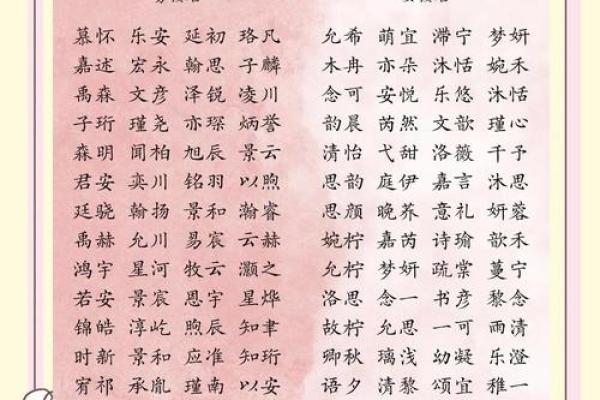 慕怀 乐安 延初 珞凡 允希 萌宜 滞宁 梦妍
嘉述 宏永 翰思 子麟 木冉 亦朵 沐恬 婉禾
禹森 文彦 泽锐 凌川 念可 安悦 乐悠 沐恬
子珩 瑾尧 亦琛 炳誉 韵晨 芮然 文歆 瑾心
森明 闻柏 旭辰 景云 清怡 弋甜 洛薇 千予
君安 奕川 铭羽 以煦 思韵 庭伊 嘉言 沐思
廷骁 翰扬 景和 瀚睿 思颜 晚荞 意礼 妍蓉
禹赫 允川 易宸 云赫 婉柠 嘉芮 诗瑜 歆禾
鸿宇 星河 牧云 灏之 允柠 梦妍 疏棠 蔓宁
若安 景宸 思宇 星烨 洛思 念一 书彦 黎念
锦皓 淳屹 煦辰 知聿 故柠 允思 一可 雨清
时新 景和 应准 知珩 卿秋 璃浅 幼凝 乐澄
宥祁 承胤 瑾南 以安 语夕 清黎 颂宜 稚一